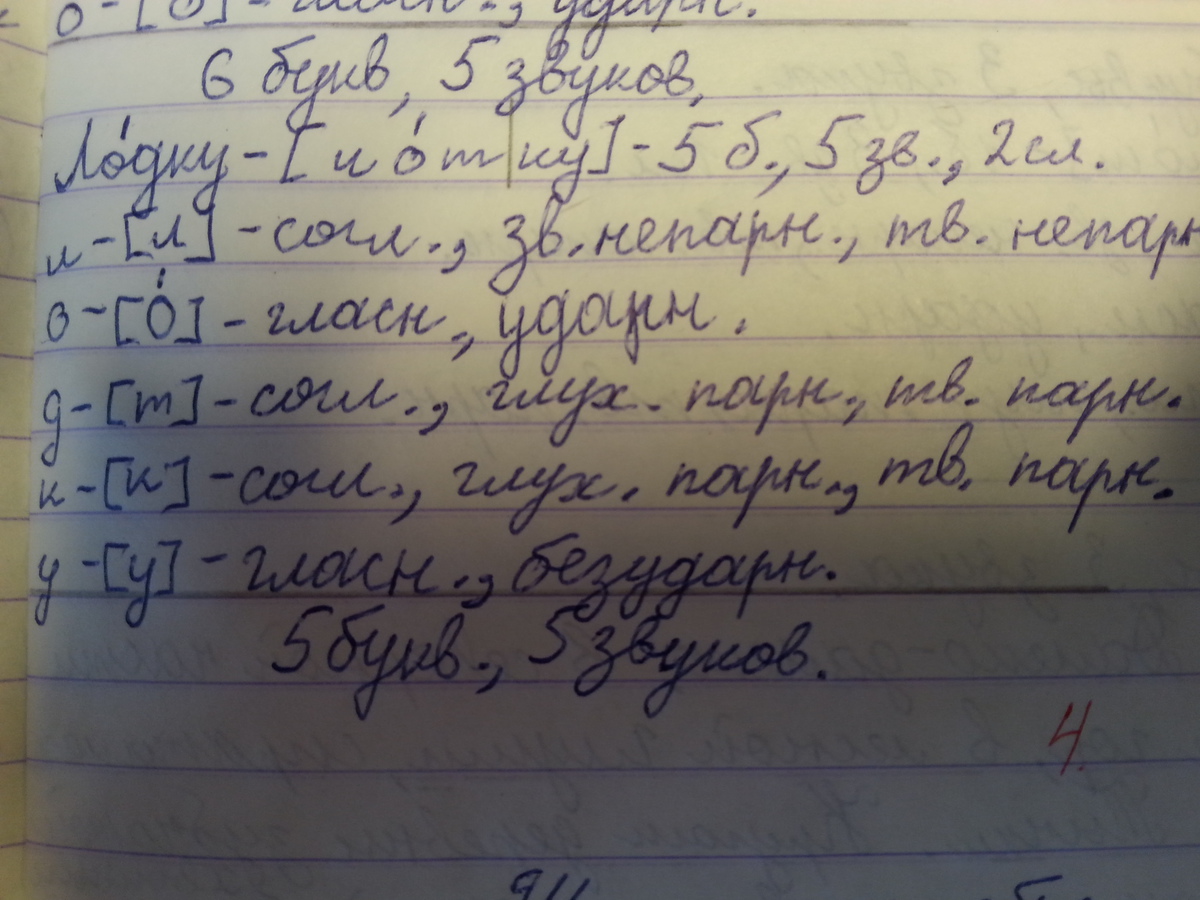 о-[о́]-гласн., ударн.
6 букв, 5 звуков,
Ло́дку-[ло́т|ку]-5 б., 5 зв., 2 сл.
л-[л]-согл., зв. непарн., тв. непарн
о-[о́]-гласн., ударн.
д-[т]-согл., глух. парн., тв. парн.
к-[к]-согл., глух. парн., тв. парн.
у-[у]-гласн., безударн.
5 букв., 5 звуков.
4.